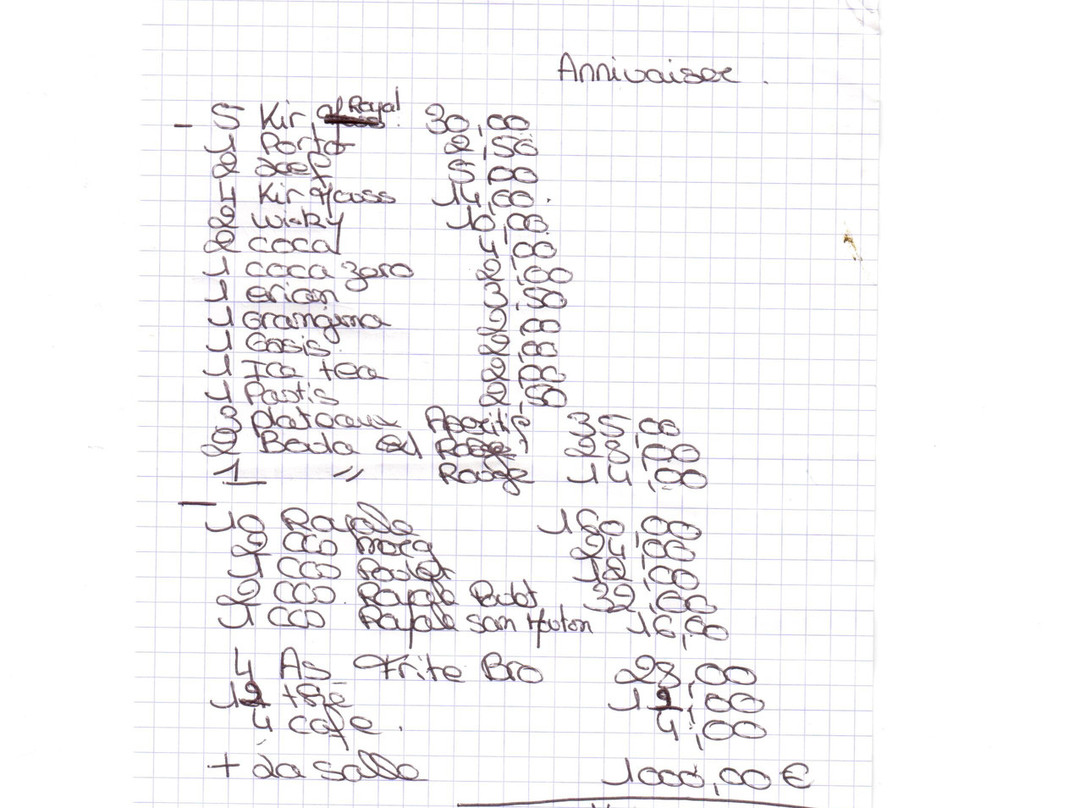 Annivaisee.
- 5 Kir Royal 30,00
1 Porto 2,50
2 2,00
4 Kir cass 14,00.
2 wisky 10,00
2 coca 4,00
1 coca zero 2,00
1 evian 3,50
1 orangina 2,00
1 Oasis 2,00
1 Ice tea 2,00
1 Pastis 2,50
3 plateaux Aperitif 35,00
2 Boula Rose 28,00
1 " Rouge 14,00
- 10 Royale 160,00
2 CCO merg 24,00
1 CCO Poulet 12,00
2 CCO Royale Bubt 32,00
1 CCO Royale san mouton 16,00
4 As Frite Bro 28,00
12 thé 12,00
4 cafe. 4,00
+ la salle 1000,00 €